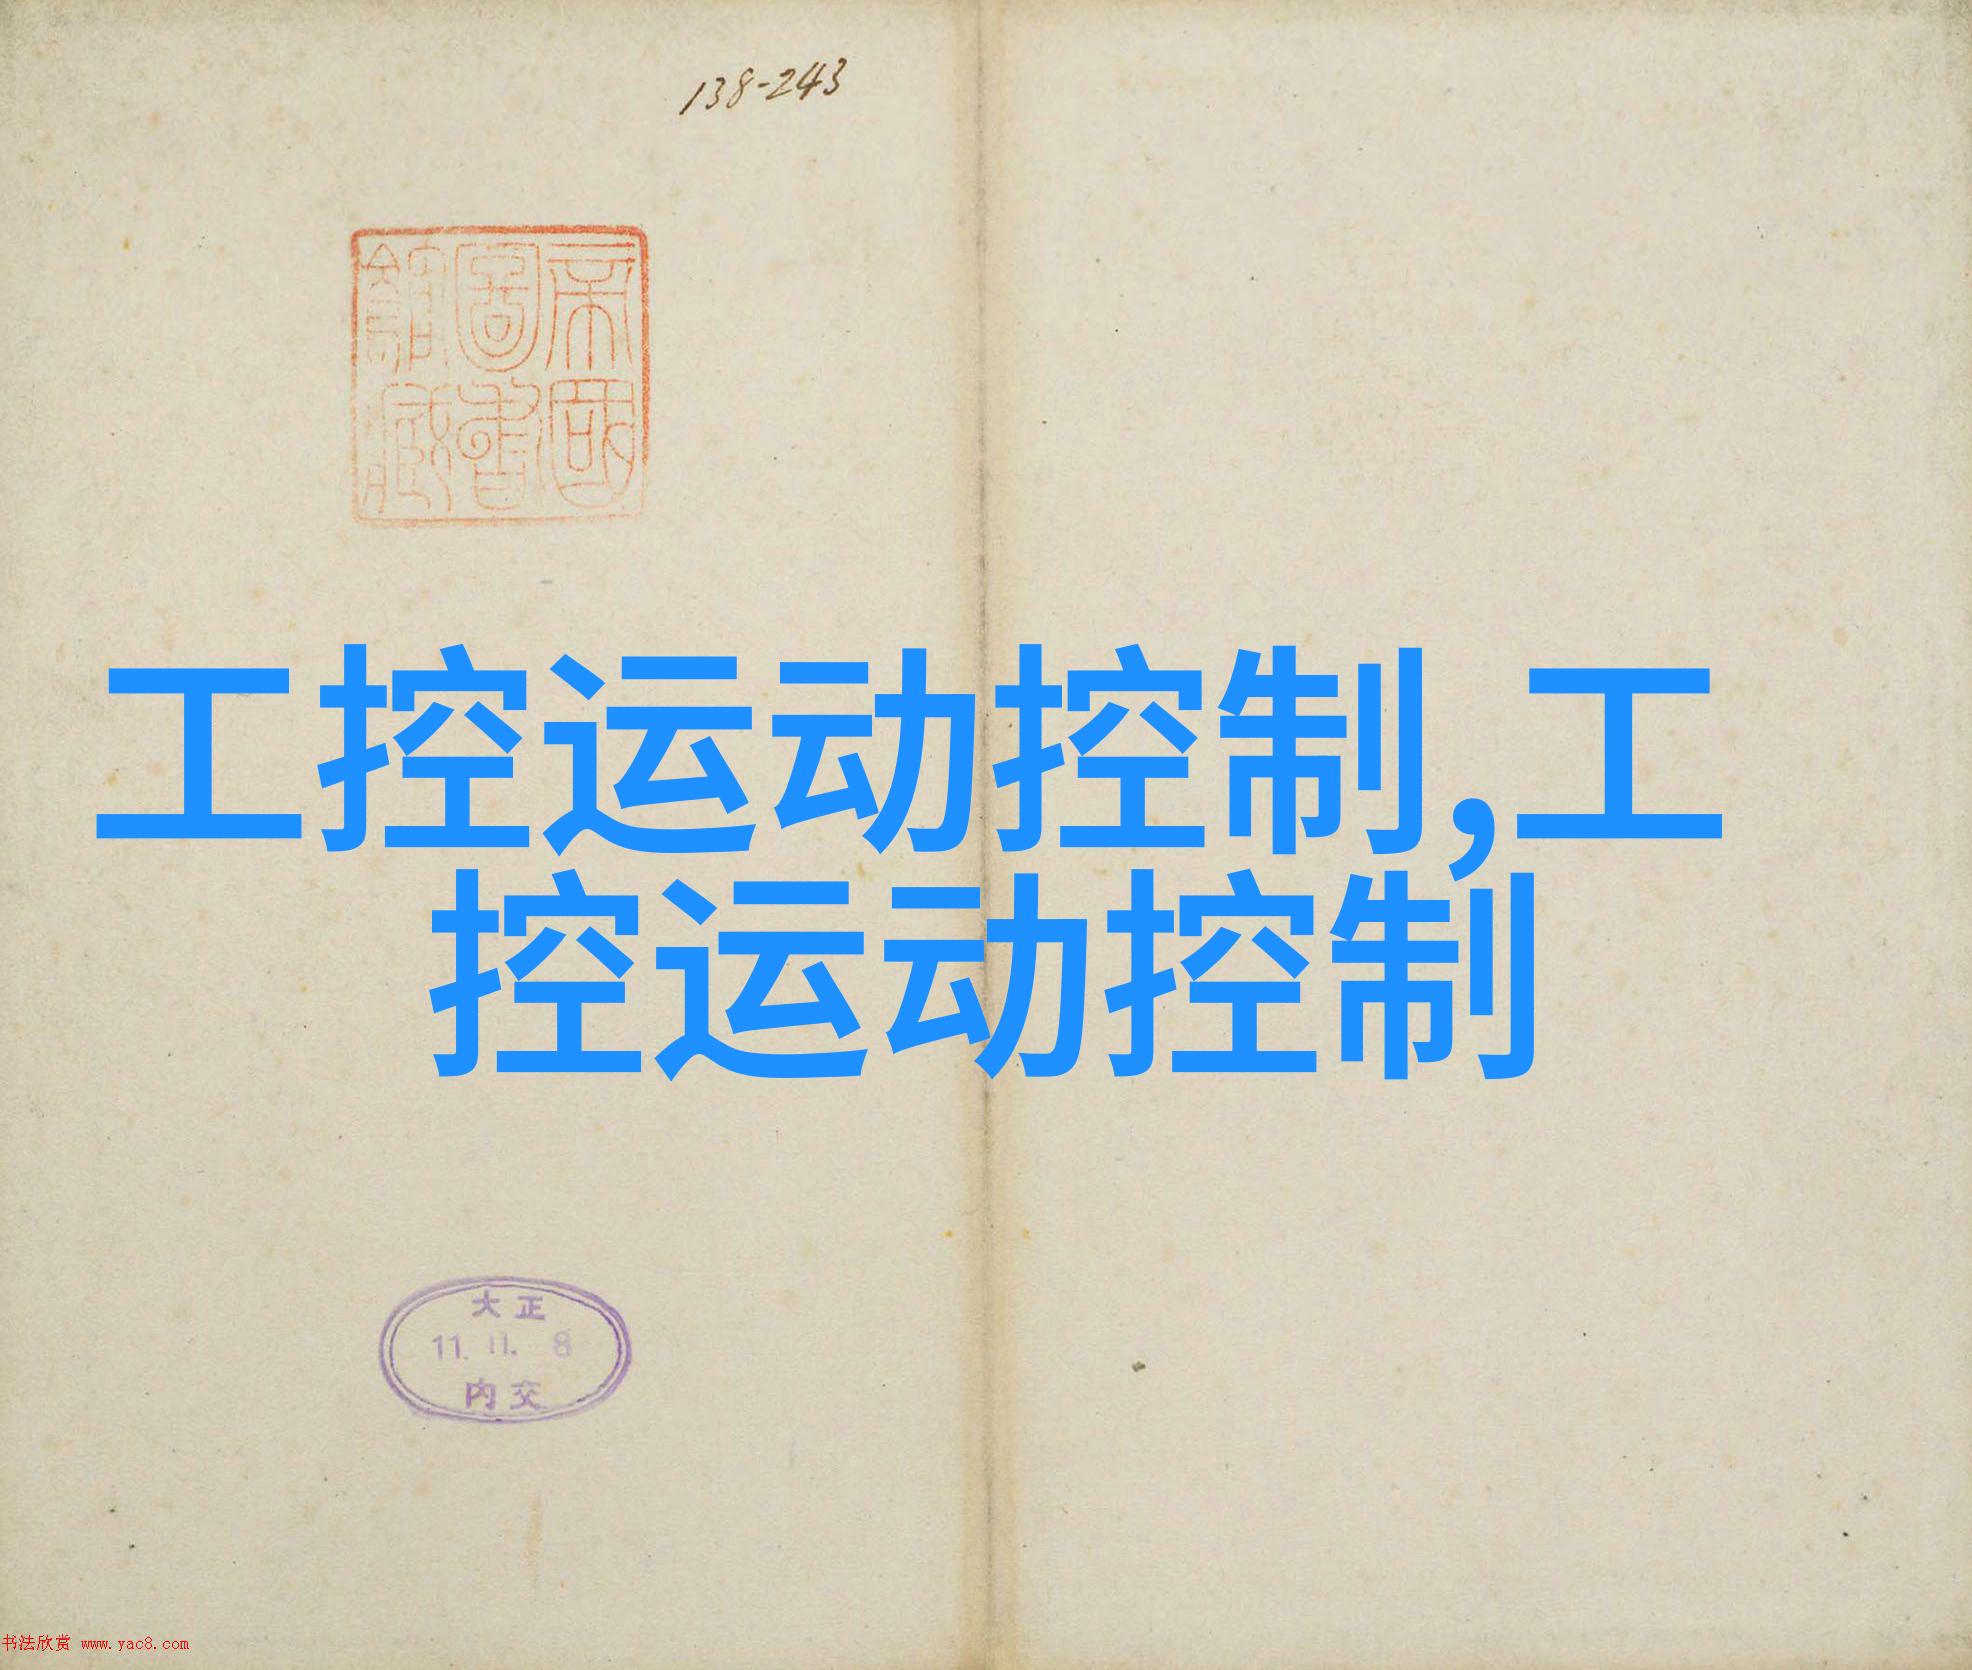 138-243
帝國
圖書
館藏
工控运动控制,工
控运动控制
大正
11. 11. 8
内交
书法欣赏 www.yac8.com